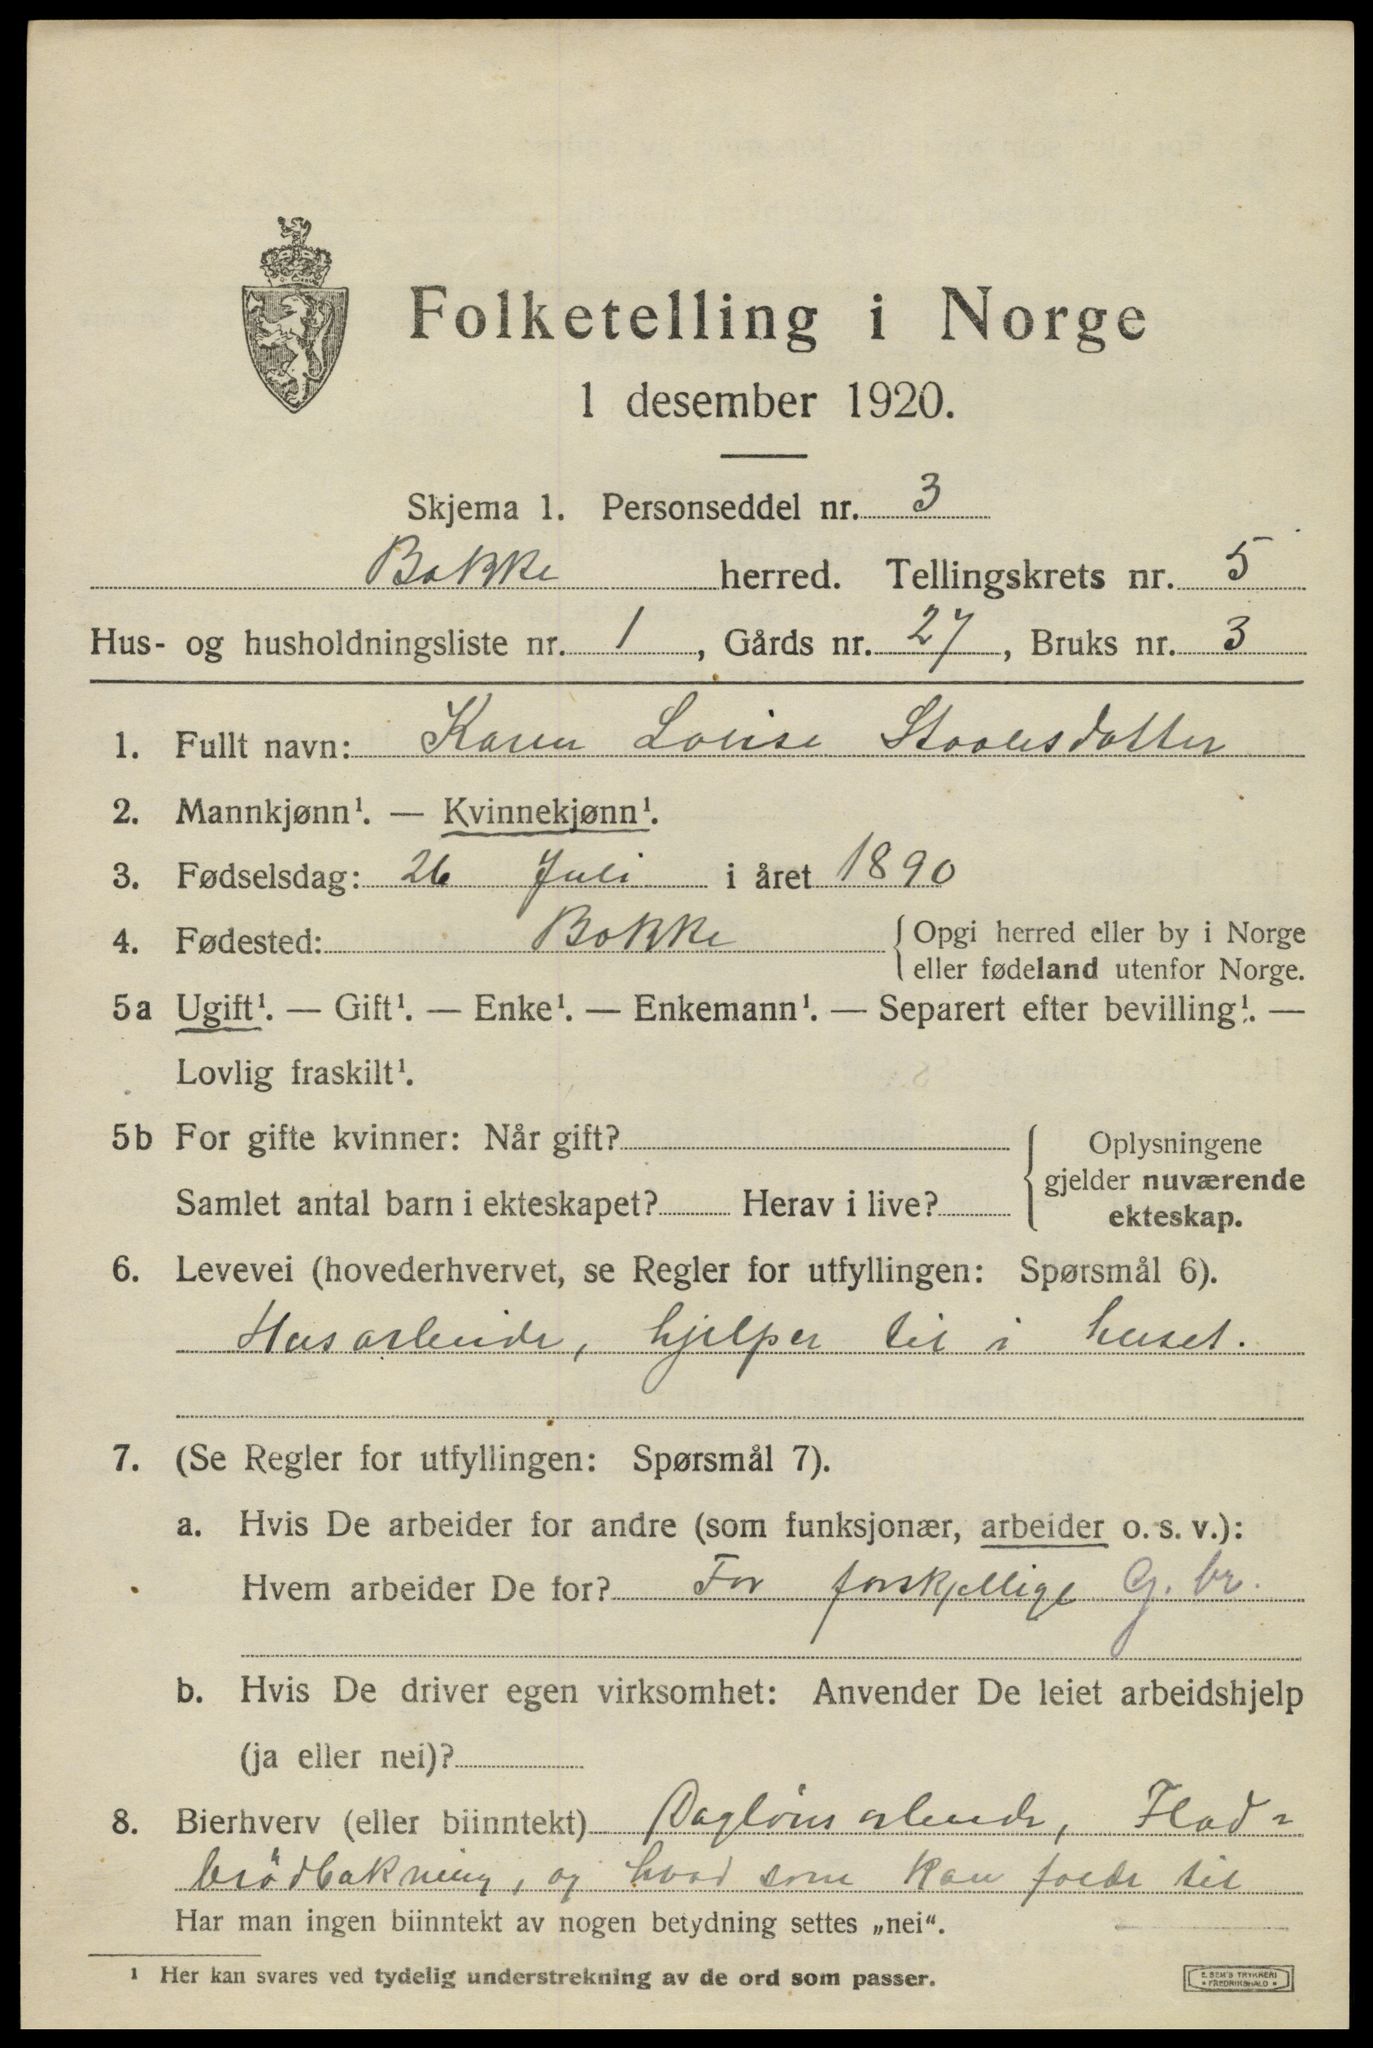 Folketelling i Norge
1 desember 1920.
Skjema 1. Personseddel nr. 3
Bakke herred. Tellingskrets nr. 5
Hus- og husholdningsliste nr. 1, Gårds nr. 27, Bruks nr. 3
1. Fullt navn: Karen Louise Staalesdatter
2. Mannkjønn¹. — Kvinnekjønn¹.
3. Fødselsdag: 26 Juli i året 1890
4. Fødested: Bakke { Opgi herred eller by i Norge
eller fødeland utenfor Norge.
5a Ugift¹. — Gift¹. — Enke¹. — Enkemann¹. — Separert efter bevilling¹. —
Lovlig fraskilt¹.
5b For gifte kvinner: Når gift? { Oplysningene
gjelder nuværende
Samlet antal barn i ekteskapet? Herav i live?
ekteskap.
6. Levevei (hovederhvervet, se Regler for utfyllingen: Spørsmål 6).
Husarbeide, hjelper til i huset.
7. (Se Regler for utfyllingen: Spørsmål 7).
a. Hvis De arbeider for andre (som funksjonær, arbeider o. s. v.):
Hvem arbeider De for? For forskjellige G. br.
b. Hvis De driver egen virksomhet: Anvender De leiet arbeidshjelp
(ja eller nei)?
8. Bierhverv (eller biinntekt) Daglönsarbeide, Flad-
brödbakning, og hvad som kan falde til
Har man ingen biinntekt av nogen betydning settes „nei“.
¹ Her kan svares ved tydelig understrekning av de ord som passer.
E. SEM'S TRYKKERI
* FREDRIKSHALD *